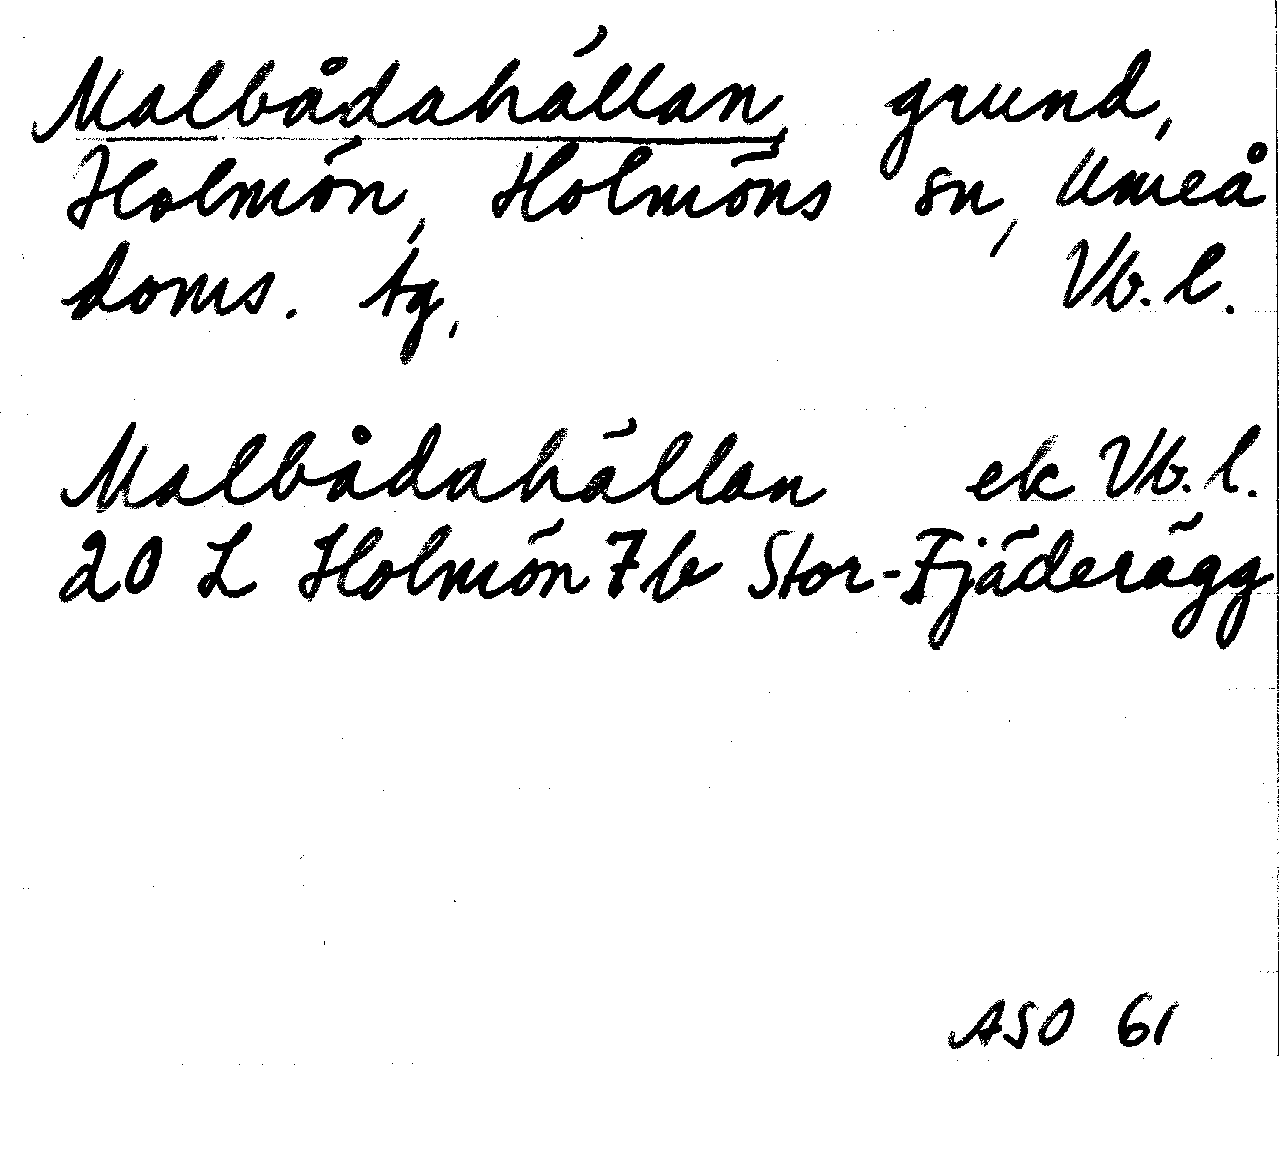 Malbådahällan, grund,
Holmön, Holmöns sn, Umeå
doms. tg, Vb. l.
Malbådahällan ek Vb. l.
20 L Holmön 7b Stor-Fjäderägg
ASO 61